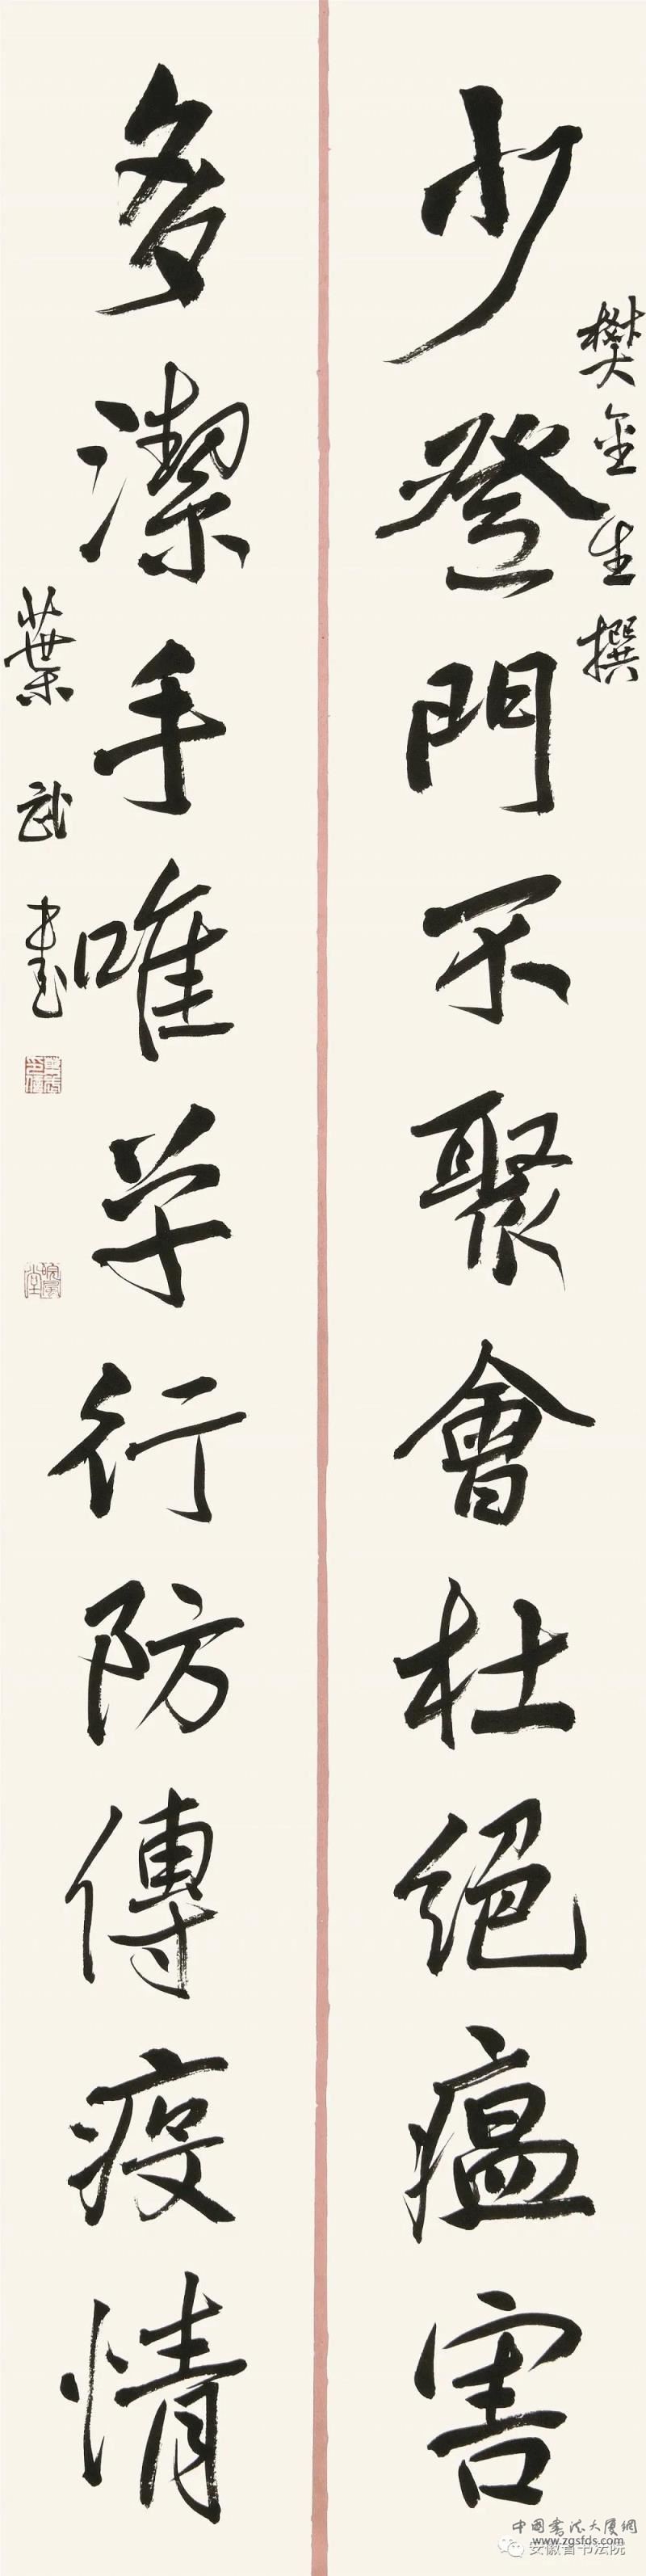 少登門不聚會杜絕瘟害
樊金生撰
多潔手唯單行防傳疫情
葉武書
中国书法大厦网
www.zgsfds.com
安徽省书法院